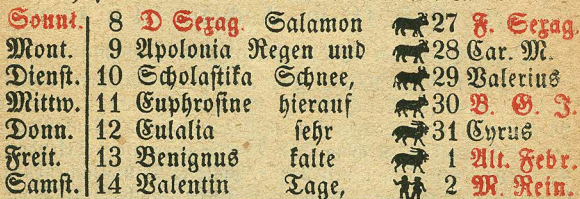 Sonnt. 8 D Sexag. Salamon 27 F. Sexag.
Mont. 9 Apolonia Regen und 28 Car. M.
Dienst. 10 Scholastika Schnee, 29 Valerius
Mittw. 11 Euphrosine hierauf 30 B. G. J.
Donn. 12 Eulalia sehr 31 Cyrus
Freit. 13 Benignus kalte 1 Alt. Febr.
Samst. 14 Valentin Tage, 2 M. Rein.